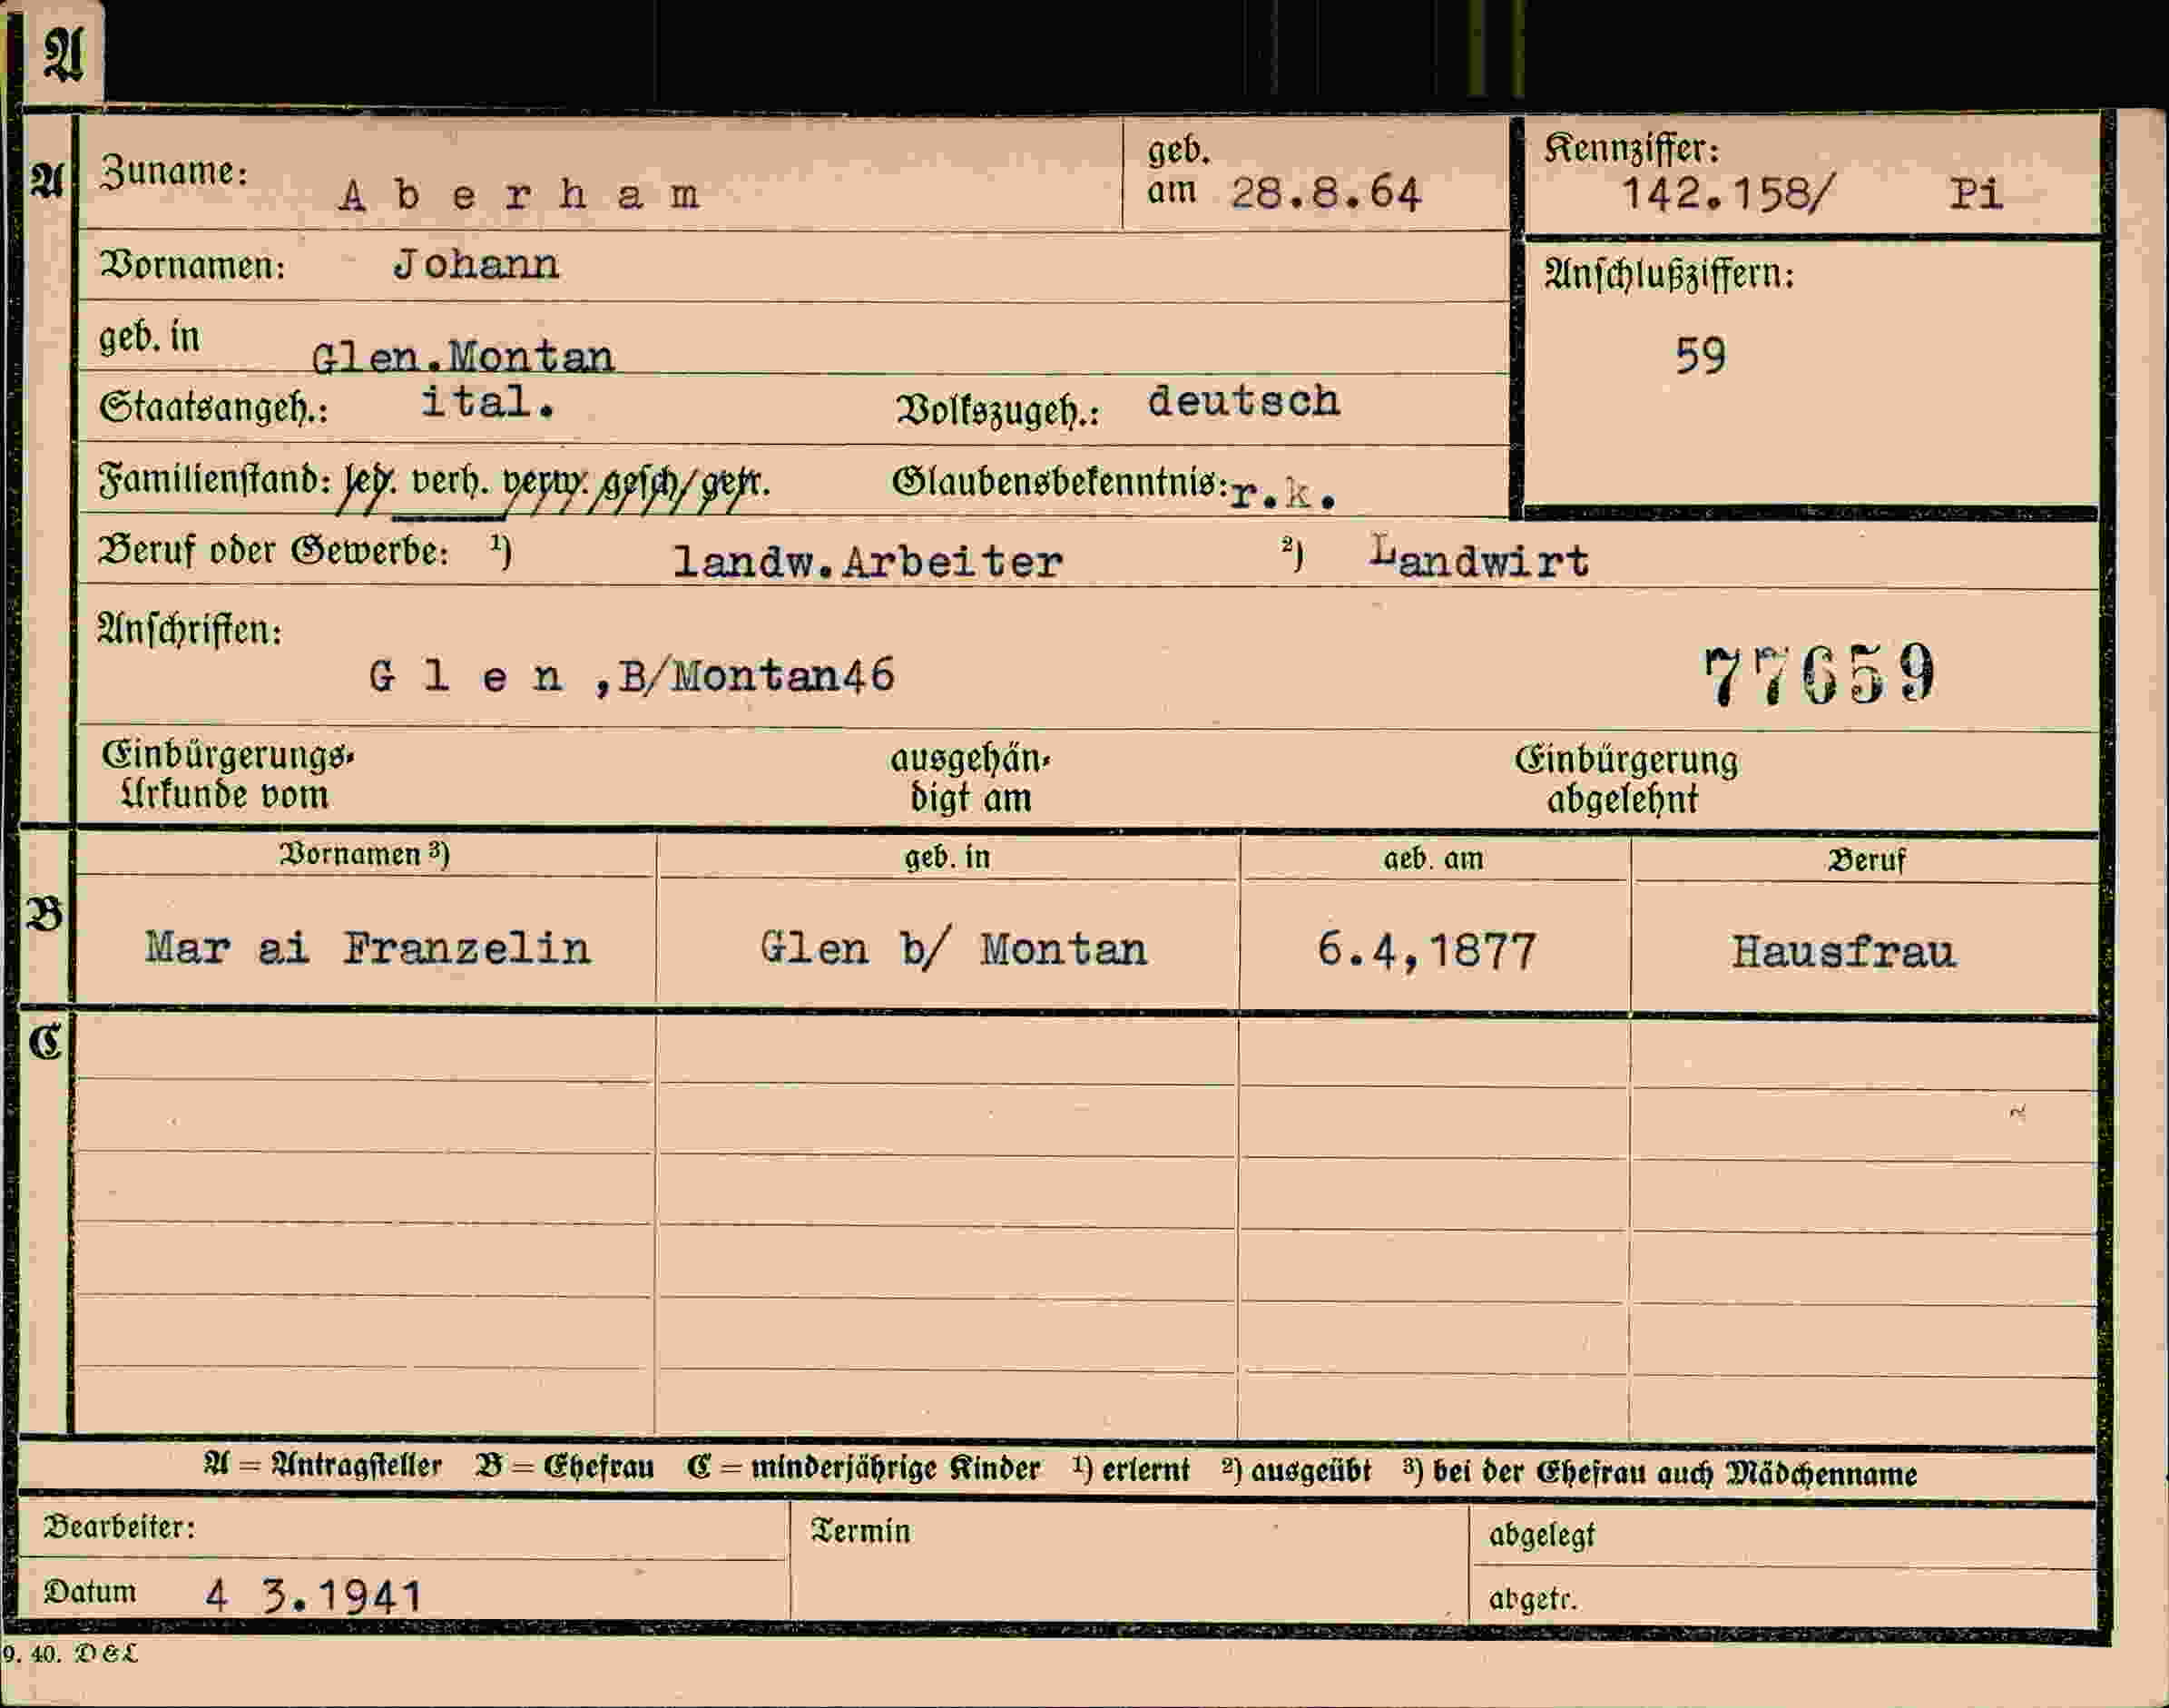 A
A
Zuname: Aberham geb. am 28.8.64 Kennziffer: 142.158/ Pi
Vornamen: Johann Anschlußziffern:
geb. in Glen.Montan 59
Staatsangeh.: ital. Volkszugeh.: deutsch
Familienstand: led. verh. verw. gesch/getr. Glaubensbekenntnis: r.k.
Beruf oder Gewerbe: 1) landw.Arbeiter 2) Landwirt
Anschriften:
Glen ,B/Montan46 77659
Einbürgerungs- ausgehän- Einbürgerung
Urkunde vom digt am abgelehnt
Vornamen 3) geb. in geb. am Beruf
B Mar ai Franzelin Glen b/ Montan 6.4,1877 Hausfrau
C
A = Antragsteller B = Ehefrau C = minderjährige Kinder 1) erlernt 2) ausgeübt 3) bei der Ehefrau auch Mädchenname
Bearbeiter: Termin abgelegt
Datum 4 3.1941 abgetr.
9. 40. D & L